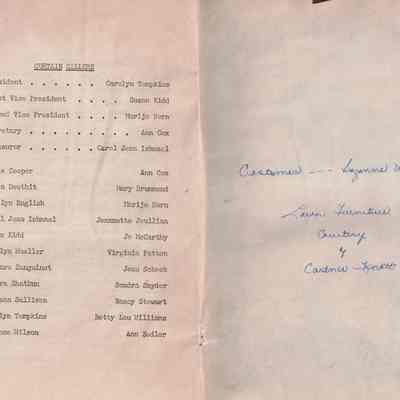 CURTAIN CALLERS
sident . . . . . . Carolyn Tompkins
st Vice President . . . . Susan Kidd
ond Vice President . . . . Marije Horn
retary . . . . . . . . . Ann Cox
surer . . . . . . Carol Jean Ishmael
Cooper Ann Cox
n Douthit Mary Drummond
lyn English Marije Horn
l Jean Ishmael Jeannette Joullian
n Kidd Jo McCarthy
lyn Mueller Virginia Patton
Sanguinet Jean Schock
ra Shelton Sondra Snyder
Sullivan Nancy Stewart
lyn Tompkins Betty Lou Williams
Wilson Ann Zedler
Costumes --- Suzanne
Lawn Furniture
Courtesy
of
Gardner